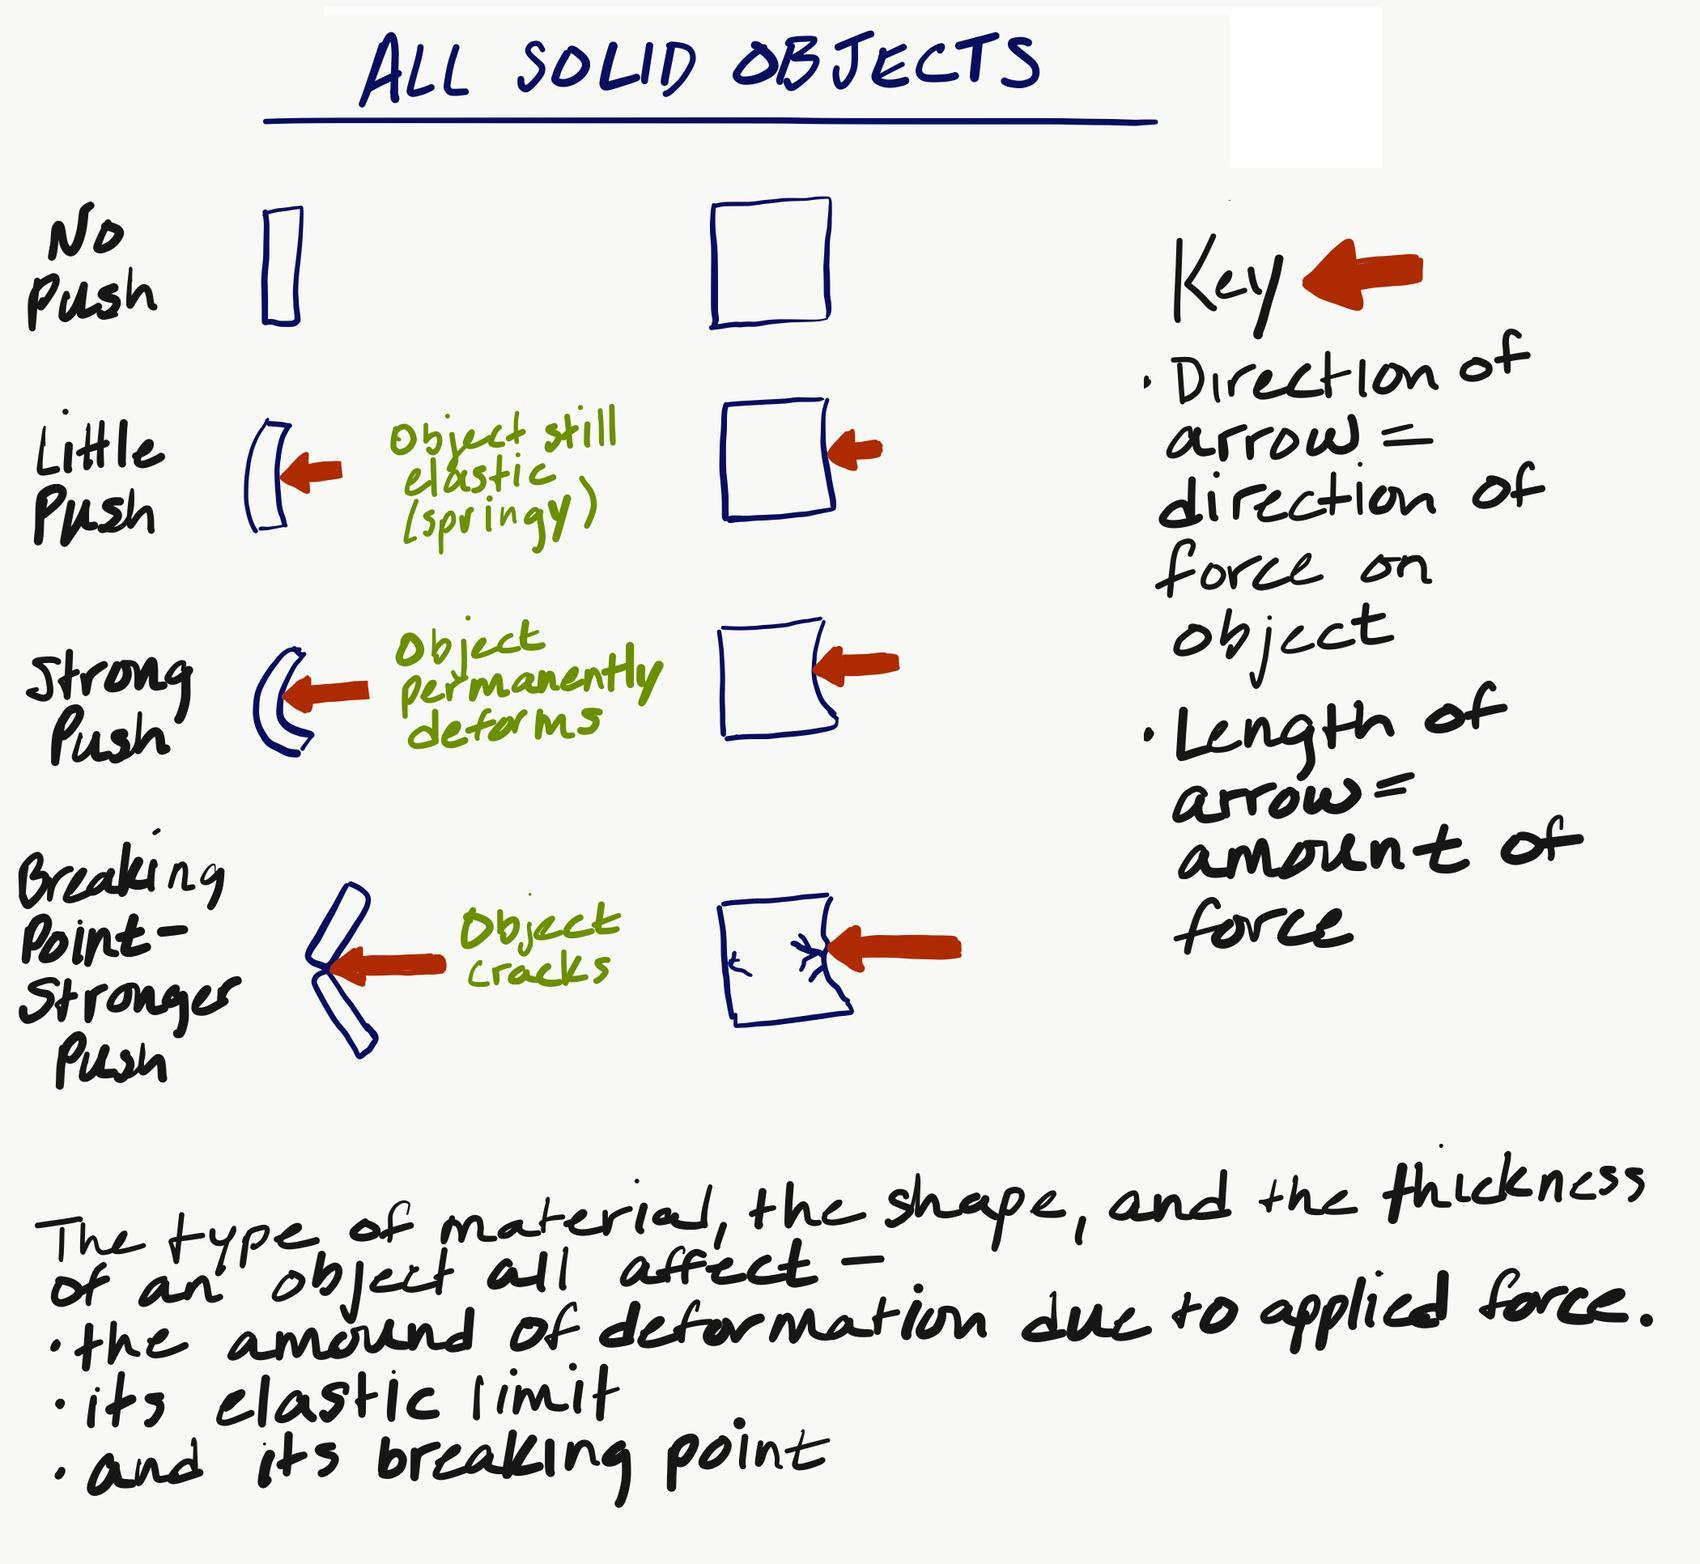 ALL SOLID OBJECTS
No
Push
Little
Push
Object still
elastic
(springy)
Strong
Push
Object
permanently
deforms
Breaking
Point-
Stronger
Push
Object
cracks
Key
• Direction of
arrow =
direction of
force on
object
• Length of
arrow =
amount of
force
The type of material, the shape, and the thickness
of an object all affect -
• the amound of deformation due to applied force.
• its elastic limit
• and its breaking point